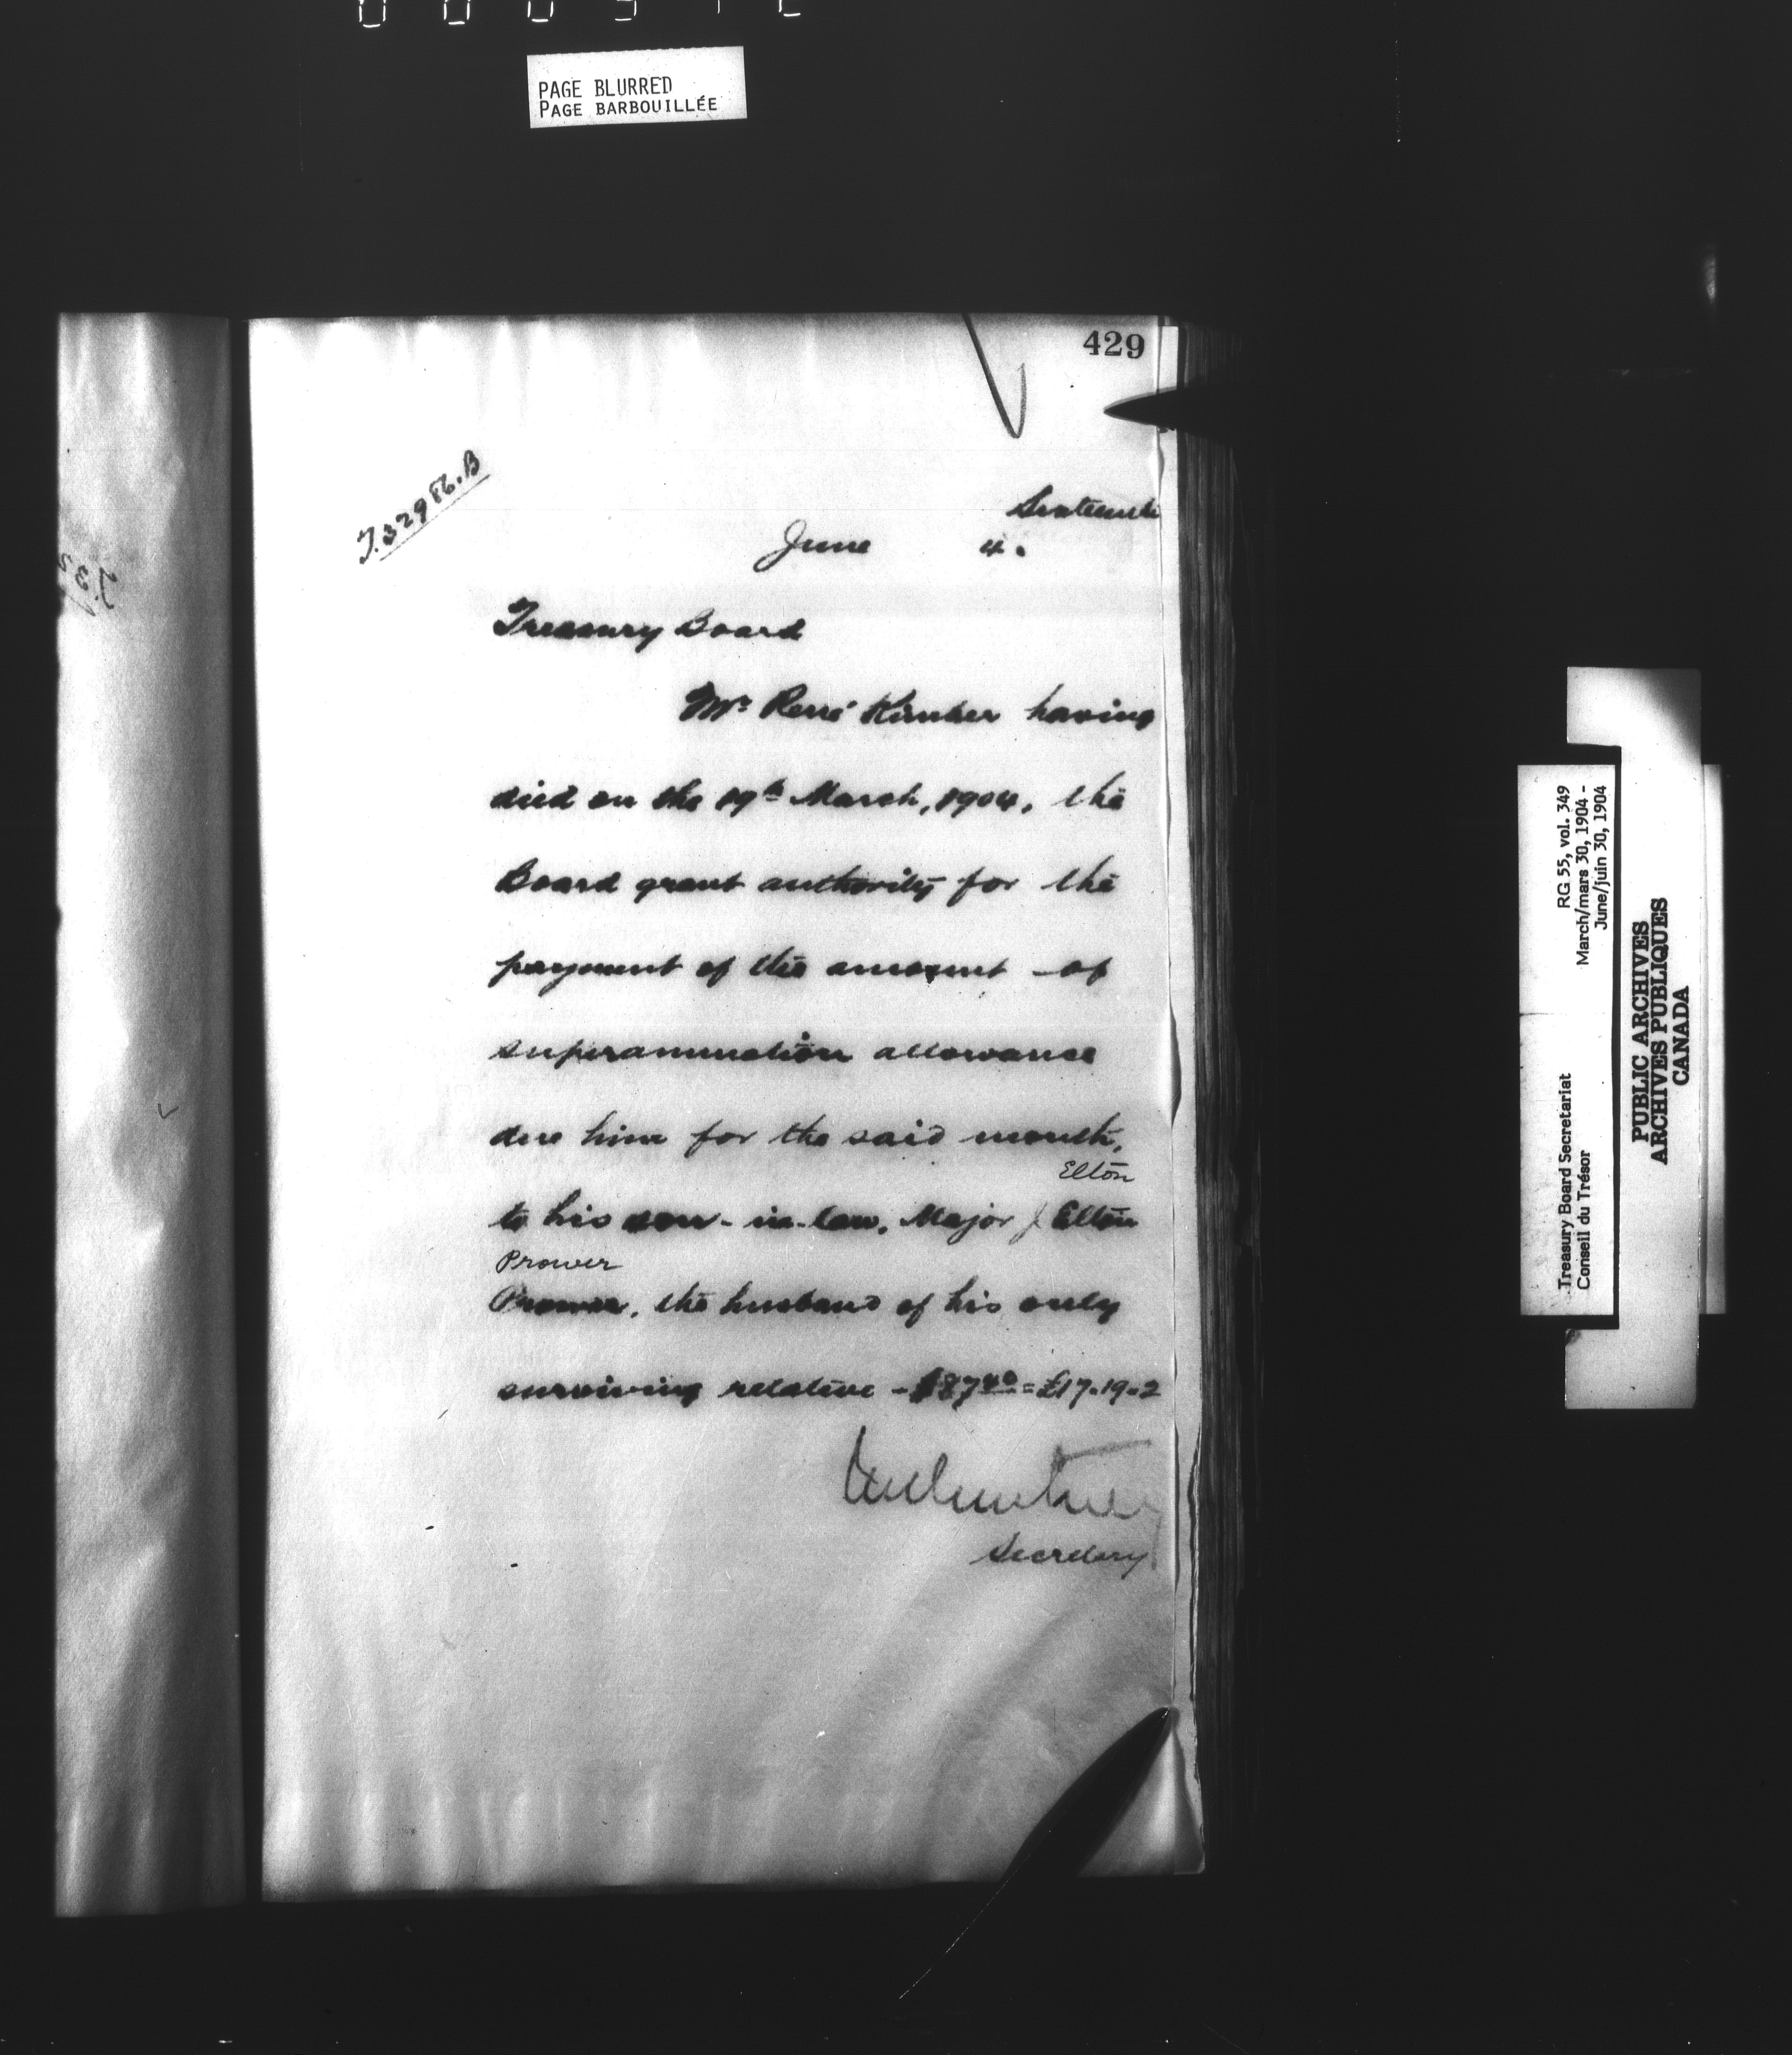 PAGE BLURRED
PAGE BARBOUILLÉE
429
T.32986.B
Sixteenth
June 4.
Treasury Board
Mr. René Kimber having
died on the 19th March, 1904, the
Board grant authority for the
payment of the amount of
superannuation allowance
due him for the said month,
Elton
to his son-in-law, Major J Elton
Prower
Prower, the husband of his only
surviving relative - $87.40 = £17.19.2
Secretary
Treasury Board Secretariat RG 55, vol. 349
Conseil du Trésor March/mars 30, 1904 -
June/juin 30, 1904
PUBLIC ARCHIVES
ARCHIVES PUBLIQUES
CANADA